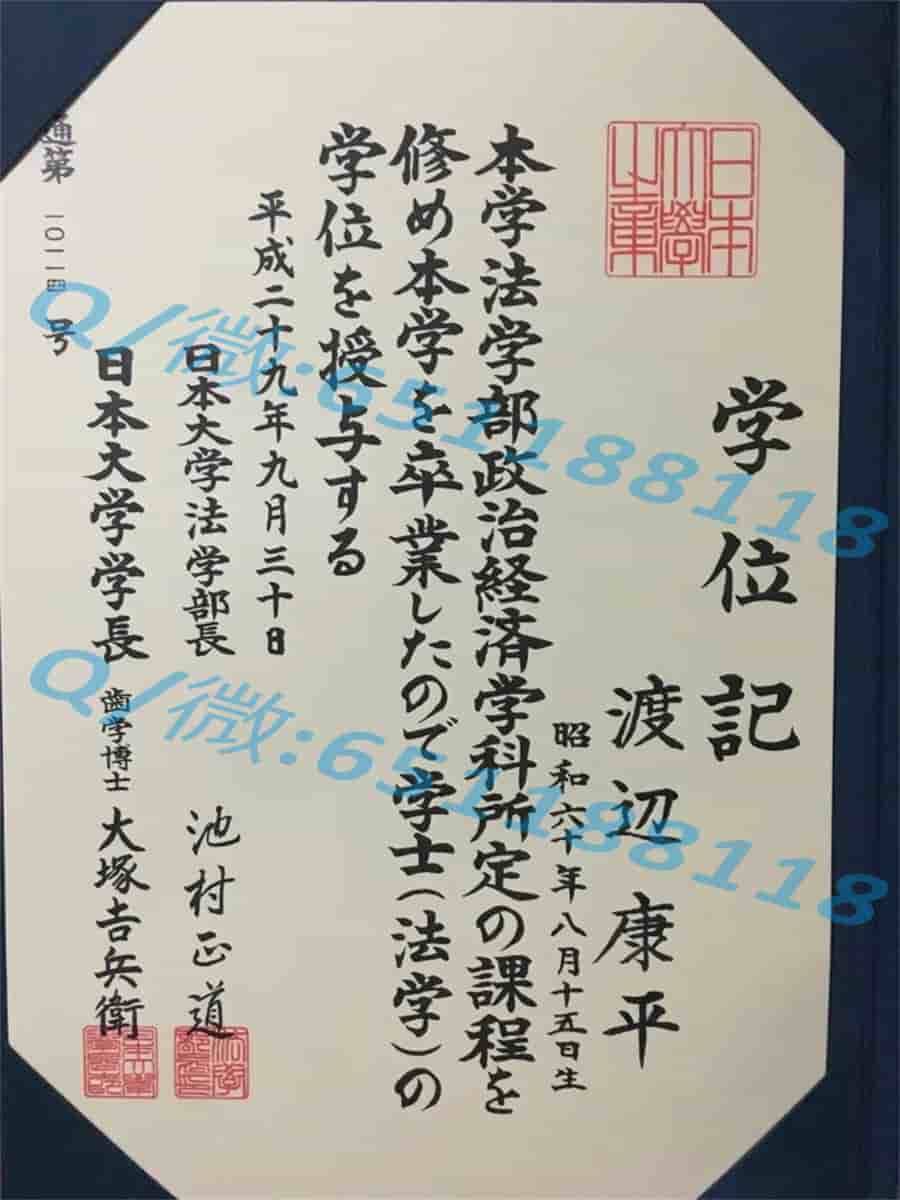 学位記
渡辺康平
昭和六十年八月十五日生
本学法学部政治経済学科所定の課程を
修め本学を卒業したので学士(法学)の
学位を授与する
平成二十九年九月三十日
日本大学法学部長 池村正道
日本大学学長 歯学博士 大塚吉兵衛
通第 一〇一一四 号
日本
大學
之章
Q/微:651188118
Q/微:651188118